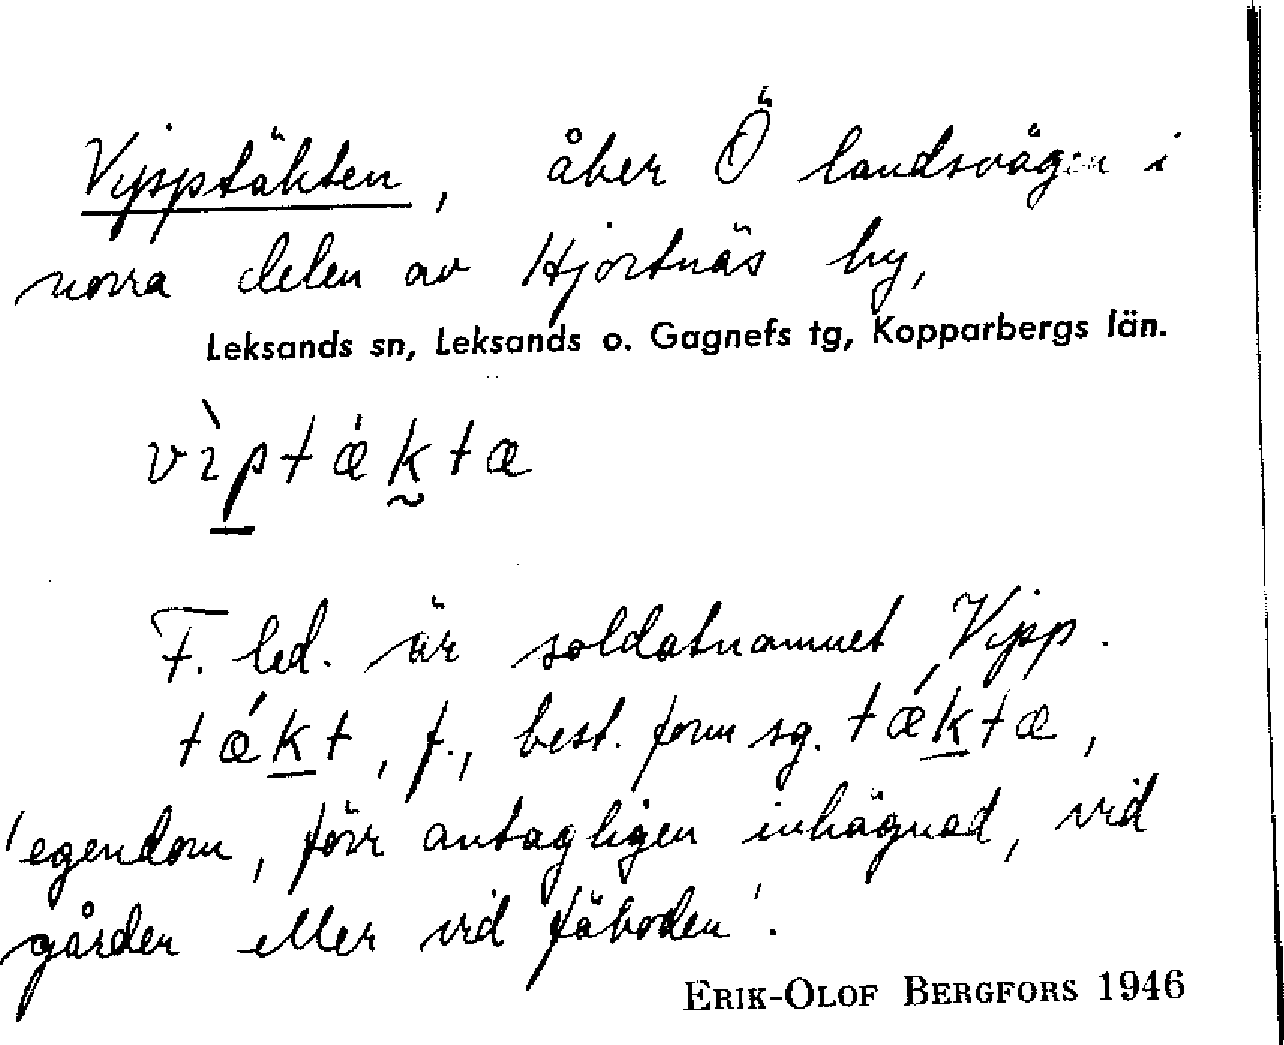 Vipptäkten, åker Ö landsvägen i
norra delen av Hjortnäs by,
Leksands sn, Leksands o. Gagnefs tg, Kopparbergs län.
vìptǽkta
F. led. är soldatnamnet Vipp.
tǽkt, f., best. form sg. tǽktæ,
'egendom, förr antagligen inhägnad, vid
gården eller vid fäboden'.
ERIK-OLOF BERGFORS 1946